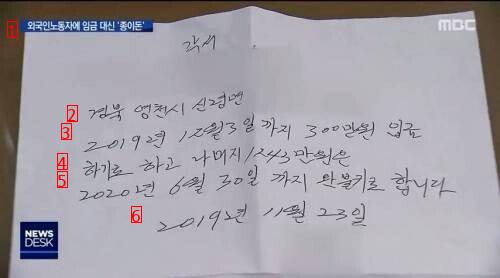 외국인노동자에 임금 대신 '종이돈'
MBC
1
각서
2 경북 영천시 신령면
3 2019년 12월 3일 까지 300만원 입료
4 하기로 하고 나머지 1243만원은
5 2020년 6월 30일 까지 완불키로 합니다
6 2019년 11월 23일
NEWS DESK